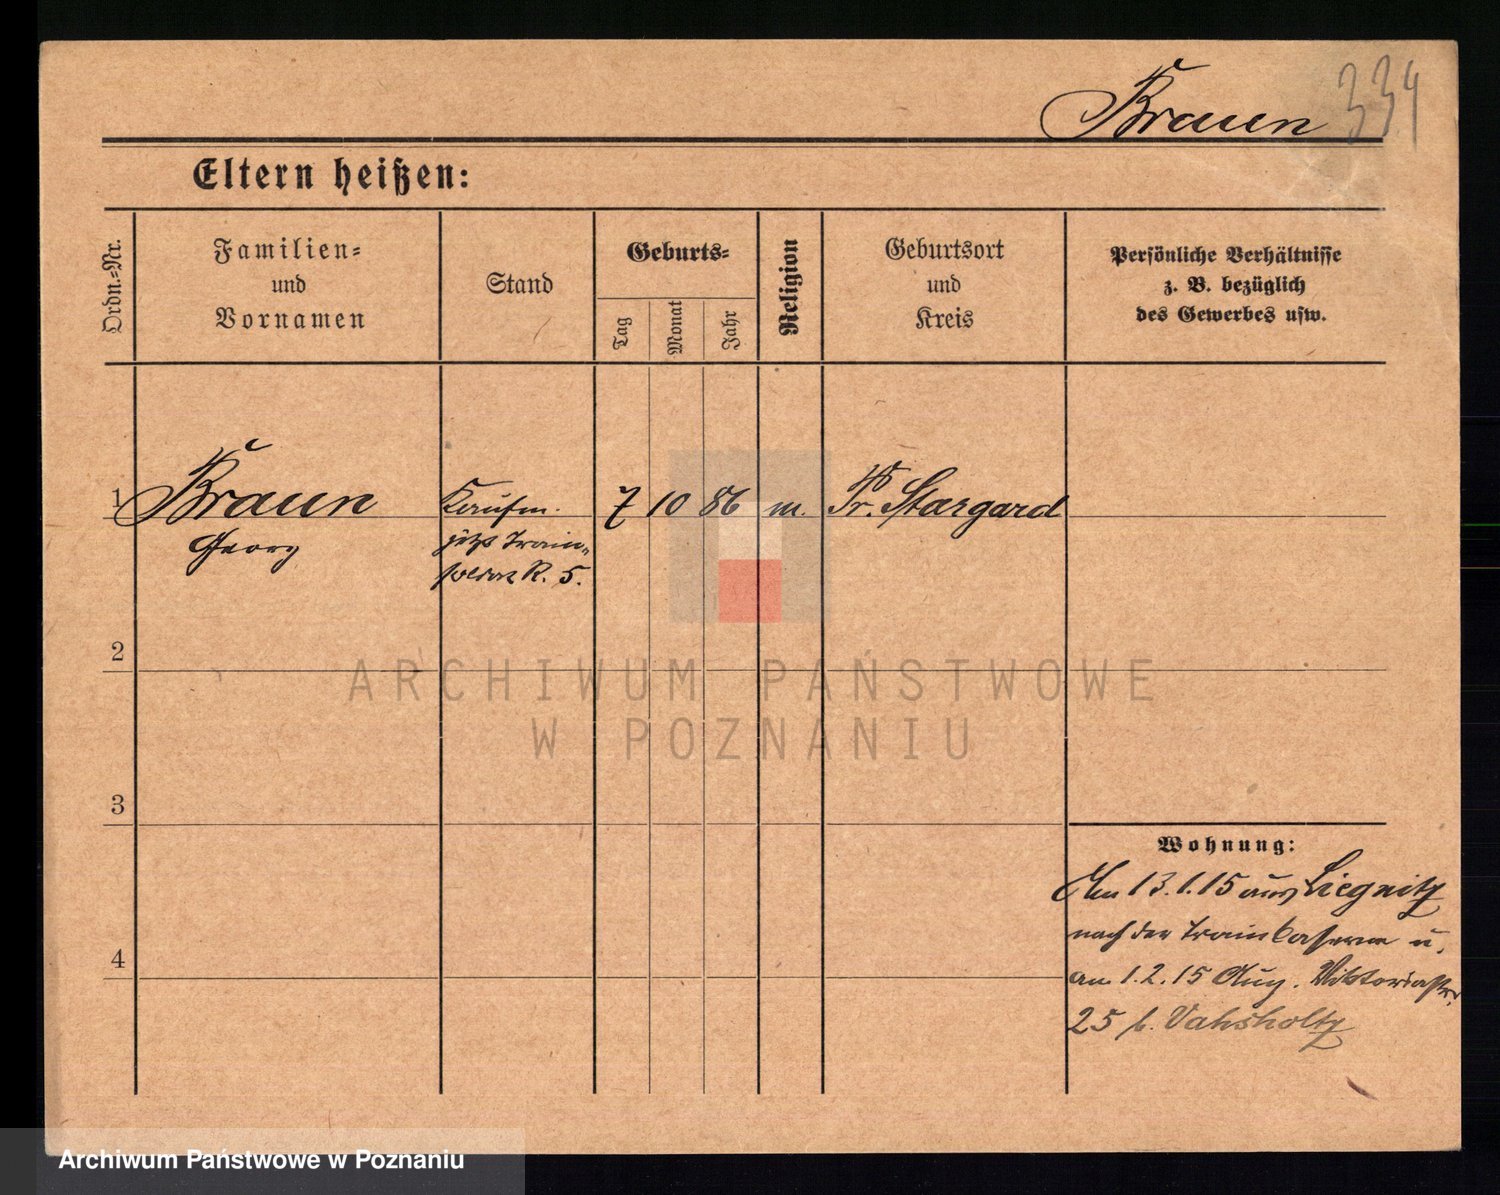 Braun 334
Eltern heißen:
Ordn.-Nr.
Familien-
und
Vornamen
Stand
Geburts-
Tag
Monat
Jahr
Religion
Geburtsort
und
Kreis
Persönliche Verhältnisse
z. B. bezüglich
des Gewerbes usw.
1 Braun Kaufm. 7 10 86 m. Pr. Stargard
Georg jetzt Train-
soldat R. 5.
2
3
4
Wohnung:
Am 13.1.15 aus Liegnitz
nach der Trainkaserne u.
am 1.2.15 Aug. Viktoriastr.
25 b. Vahsholtz
ARCHIWUM PAŃSTWOWE
W POZNANIU
Archiwum Państwowe w Poznaniu